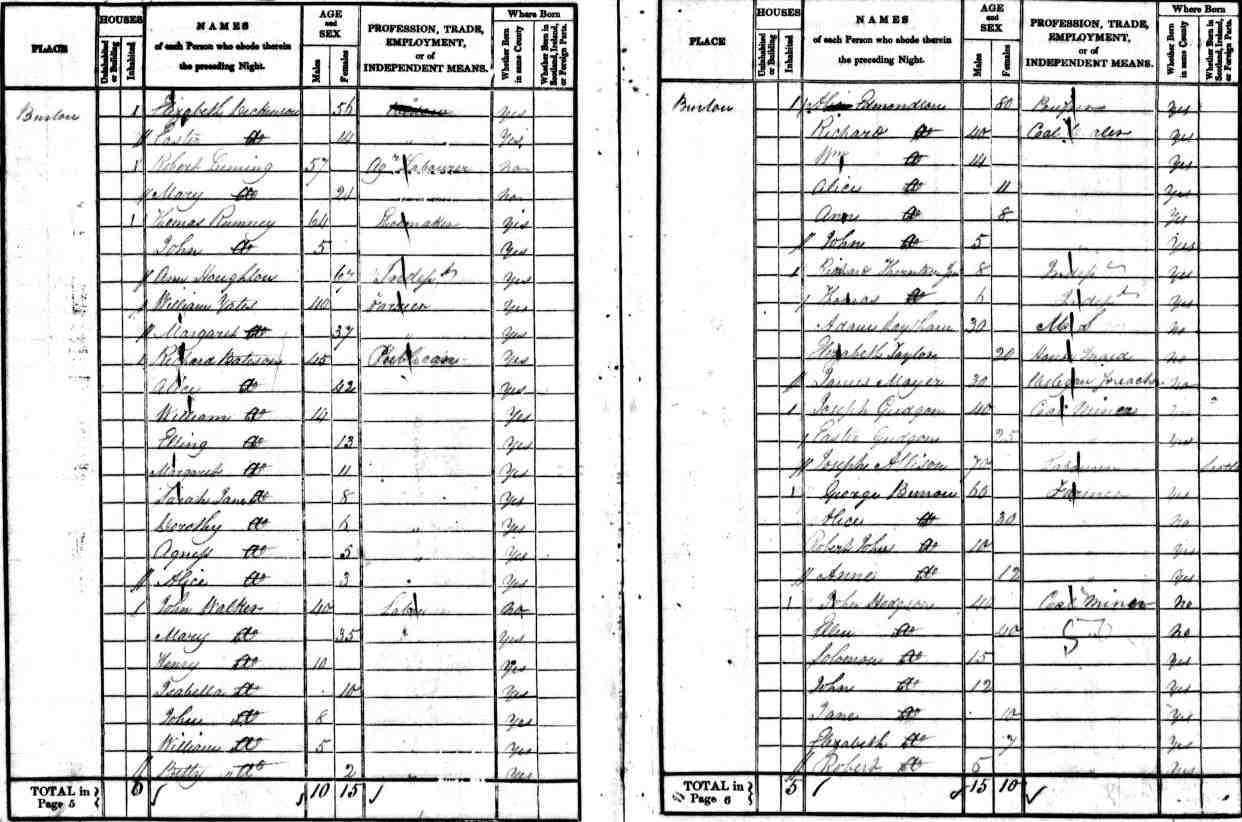 PLACE
HOUSES
Uninhabited or Building
Inhabited
NAMES
of each Person who abode therein
the preceding Night.
AGE
and
SEX
Males
Females
PROFESSION, TRADE,
EMPLOYMENT,
or of
INDEPENDENT MEANS.
Where Born
Whether Born in same County
Whether Born in Scotland, Ireland, or Foreign Parts.
Burton 1 Elizabeth Dickinson 56 Yes
Easter Do 14 Yes
1 Robert 57 Ag Labourer No
Mary Do 21 No
1 Thomas Rumney 64 Shoemaker Yes
John Do 5 Yes
Ann Houghton Indept Yes
William Yates 40 Farrier Yes
Margaret Do 37 Yes
1 Richard Bateson 45 Publican Yes
Alice Do 42 Yes
William Do 14 Yes
Elling Do 13 Yes
Margaret Do 11 Yes
Sarah Jane Do 8 Yes
Dorothy Do 6 Yes
Agness Do 5 Yes
Alice Do 3 Yes
1 John Walker 40 No
Mary Do 35 Yes
Henry Do 10 Yes
Isabella Do 10 Yes
John Do 8 Yes
William Do 5 Yes
Betty Do 2 Yes
TOTAL in Page 5 6 10 15
PLACE
HOUSES
Uninhabited or Building
Inhabited
NAMES
of each Person who abode therein
the preceding Night.
AGE
and
SEX
Males
Females
PROFESSION, TRADE,
EMPLOYMENT,
or of
INDEPENDENT MEANS.
Where Born
Whether Born in same County
Whether Born in Scotland, Ireland, or Foreign Parts.
Burton 1 Edmondson 80 Yes
Richard Do 40 Coal Yes
Wm Do 14 Yes
Alice Do 11 Yes
Ann Do 8 Yes
John Do 5 Yes
1 Richard 8 Indep Yes
Thomas Do 6 Indept Yes
Adam 30 M S No
Elizabeth Taylor 20 House Maid No
James Mayer 30 Preacher No
1 Joseph Gudgon 40 Coal Miner
Easter Gudgon 25 Yes
Joseph Allison 70
1 George Burrow 60 Farmer Yes
Alice Do 30 No
Robert John Do 10 Yes
Anne Do 12 Yes
1 John Hodgson 40 Coal Miner No
Ellen Do 40 No
Solomon Do 15 Yes
John Do 12 Yes
Jane Do 10 Yes
Elizabeth Do 7 Yes
Robert Do 5 Yes
TOTAL in Page 6 5 15 10